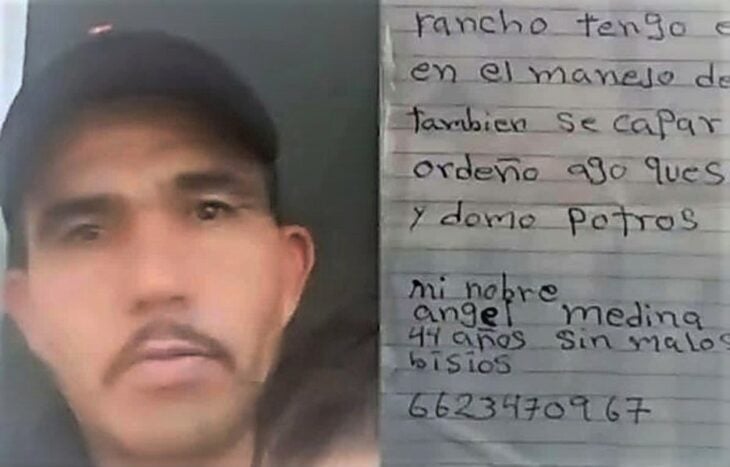 rancho tengo e
en el manejo de
tambien se capar
ordeño ago ques
y domo potros
mi nobre
angel medina
44 años sin malos
bisios
6623470967